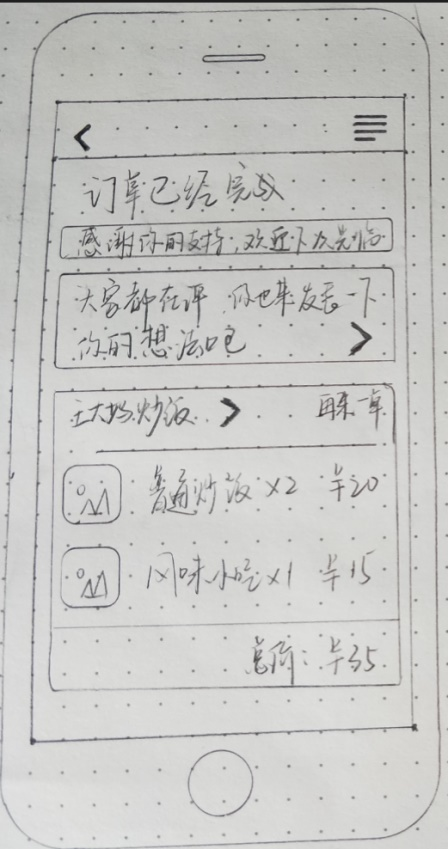 订单已经完成
感谢你的支持,欢迎下次光临
大家都在评 你也来发表一下
你的想法吧
王大妈炒饭 再来一单
普通炒饭 x2 ¥20
风味小吃 x1 ¥15
总价: ¥35